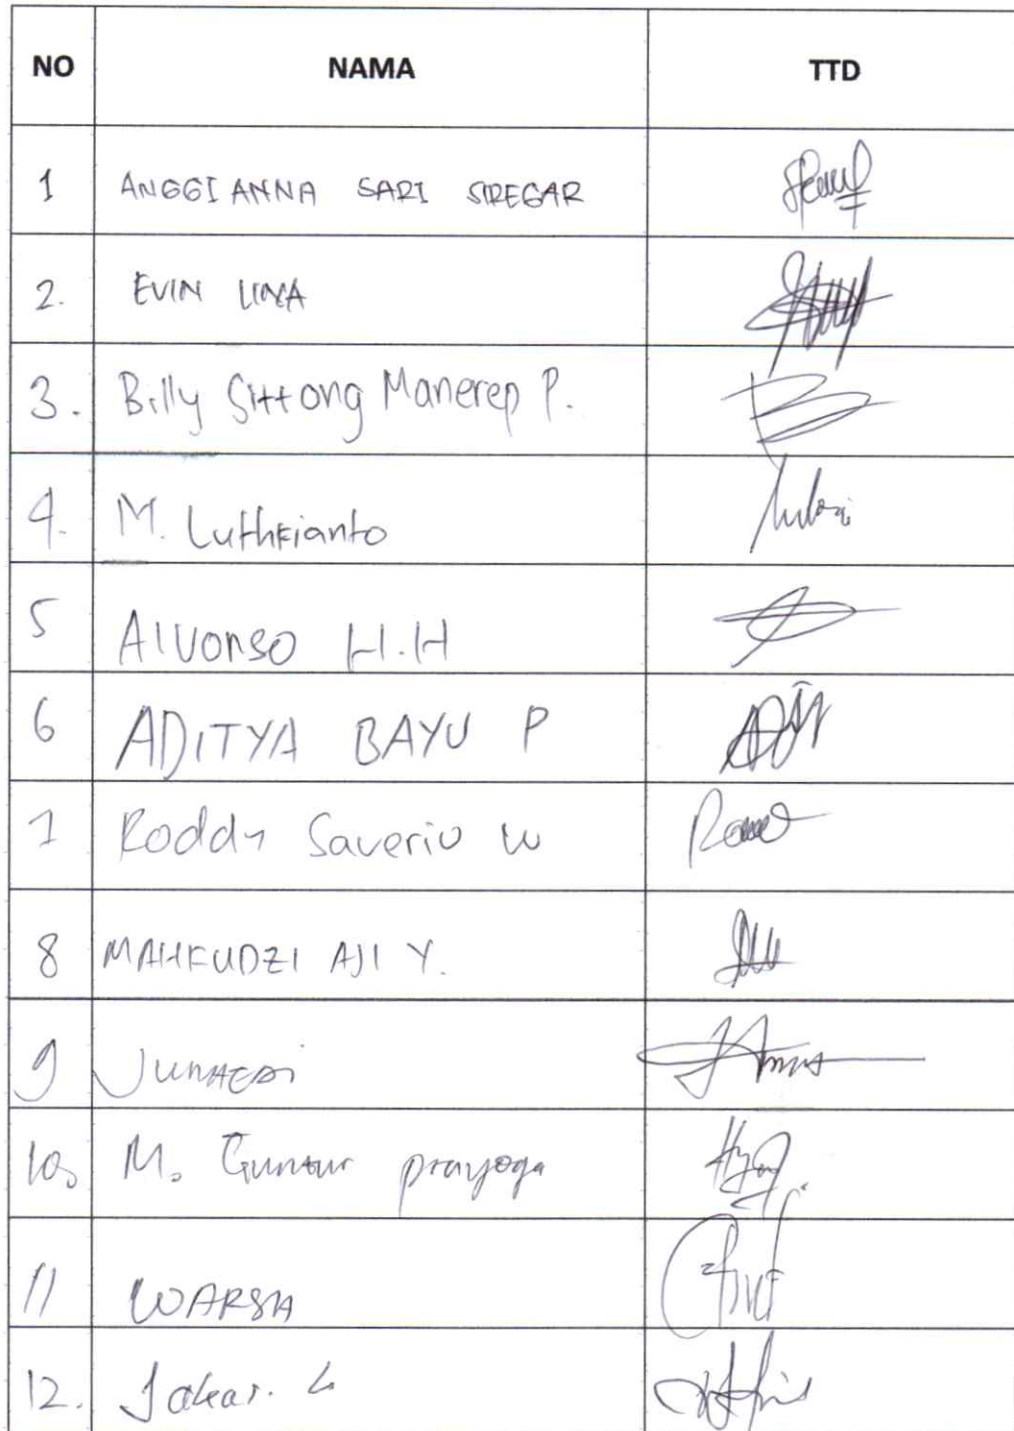 NO NAMA TTD
1 ANGGI ANNA SARI SIREGAR
2. EVIN LINA
3. Billy Sittong Manerep P.
4. M. Luthfianto
5 Alvonso H.H
6 ADITYA BAYU P
7 Roddy Saverio W
8 MAHFUDZI AJI Y.
9 Junaedi
10. M. Guntur prayoga
11 WARSIA
12.